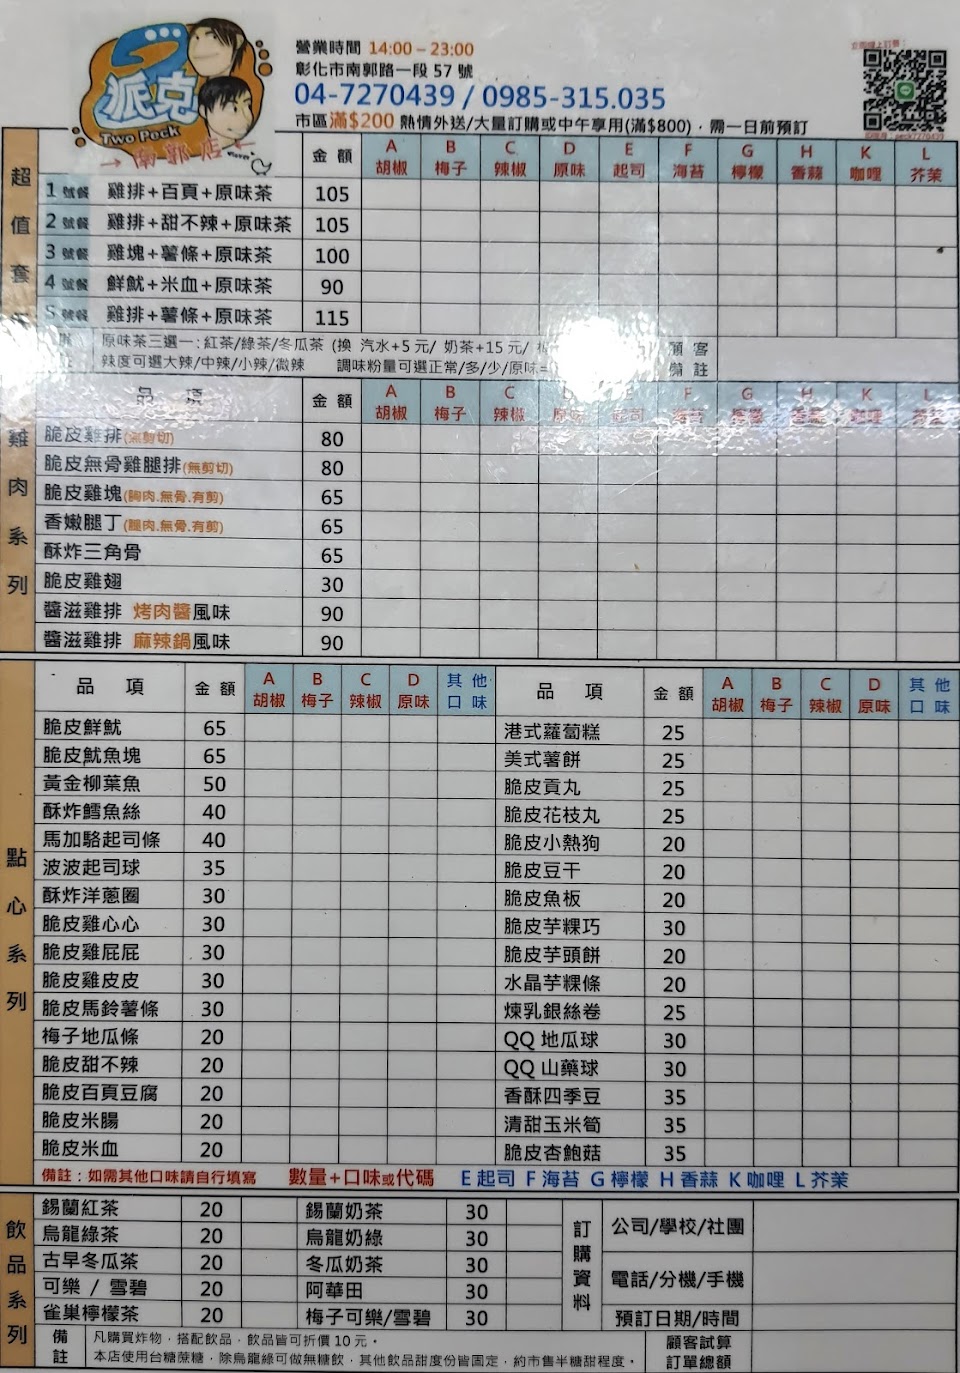 派克
Two Peck
南郭店
營業時間 14:00－23:00
彰化市南郭路一段 57 號
04-7270439 / 0985-315.035
市區滿$200 熱情外送/大量訂購或中午享用(滿$800)，需一日前預訂
超值套
金額 A胡椒 B梅子 C辣椒 D原味 E起司 F海苔 G檸檬 H香蒜 K咖哩 L芥茉
1 號餐 雞排+百頁+原味茶 105
2 號餐 雞排+甜不辣+原味茶 105
3 號餐 雞塊+薯條+原味茶 100
4 號餐 鮮魷+米血+原味茶 90
5 號餐 雞排+薯條+原味茶 115
註 原味茶三選一:紅茶/綠茶/冬瓜茶 (換 汽水+5 元/ 奶茶+15 元/
辣度可選大辣/中辣/小辣/微辣 調味粉量可選正常/多/少/原味=
顧客備註
雞肉系列
品項 金額 A胡椒 B梅子 C辣椒 D原味 E起司 F海苔 G檸檬 H香蒜 K咖哩 L芥茉
脆皮雞排(無剪切) 80
脆皮無骨雞腿排(無剪切) 80
脆皮雞塊(胸肉.無骨.有剪) 65
香嫩腿丁(腿肉.無骨.有剪) 65
酥炸三角骨 65
脆皮雞翅 30
醬滋雞排 烤肉醬風味 90
醬滋雞排 麻辣鍋風味 90
點心系列
品項 金額 A胡椒 B梅子 C辣椒 D原味 其他口味
脆皮鮮魷 65
脆皮魷魚塊 65
黃金柳葉魚 50
酥炸鱈魚絲 40
馬加駱起司條 40
波波起司球 35
酥炸洋蔥圈 30
脆皮雞心心 30
脆皮雞屁屁 30
脆皮雞皮皮 30
脆皮馬鈴薯條 30
梅子地瓜條 20
脆皮甜不辣 20
脆皮百頁豆腐 20
脆皮米腸 20
脆皮米血 20
品項 金額 A胡椒 B梅子 C辣椒 D原味 其他口味
港式蘿蔔糕 25
美式薯餅 25
脆皮貢丸 25
脆皮花枝丸 25
脆皮小熱狗 20
脆皮豆干 20
脆皮魚板 20
脆皮芋粿巧 30
脆皮芋頭餅 20
水晶芋粿條 20
煉乳銀絲卷 25
QQ 地瓜球 30
QQ 山藥球 30
香酥四季豆 35
清甜玉米筍 35
脆皮杏鮑菇 35
備註：如需其他口味請自行填寫 數量+口味或代碼 E 起司 F 海苔 G 檸檬 H 香蒜 K 咖哩 L 芥茉
飲品系列
錫蘭紅茶 20 錫蘭奶茶 30
烏龍綠茶 20 烏龍奶綠 30
古早冬瓜茶 20 冬瓜奶茶 30
可樂 / 雪碧 20 阿華田 30
雀巢檸檬茶 20 梅子可樂/雪碧 30
訂購資料
公司/學校/社團
電話/分機/手機
預訂日期/時間
備註
凡購買炸物，搭配飲品，飲品皆可折價 10 元。
本店使用台糖蔗糖，除烏龍綠可做無糖飲，其他飲品甜度份皆固定，約市售半糖甜程度。
顧客試算
訂單總額